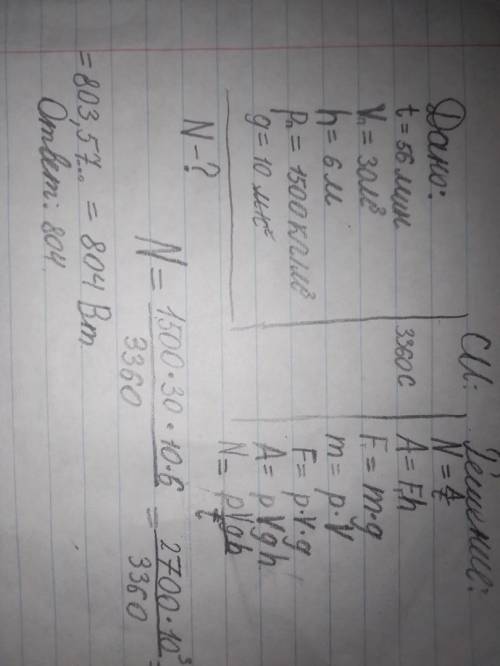 Дано:
t = 56 мин
Vп = 30 м³
h = 6 м
pп = 1500 кг/м³
g = 10 м/с²
N - ?
СИ:
3360 с
Решение:
N = A/t
A = F·h
F = m·g
m = p·V
F = p·V·g
A = pVgh
N = pVgh/t
N = 1500·30·10·6/3360 = 2700·10³/3360 =
= 803,57... = 804 Вт
Ответ: 804